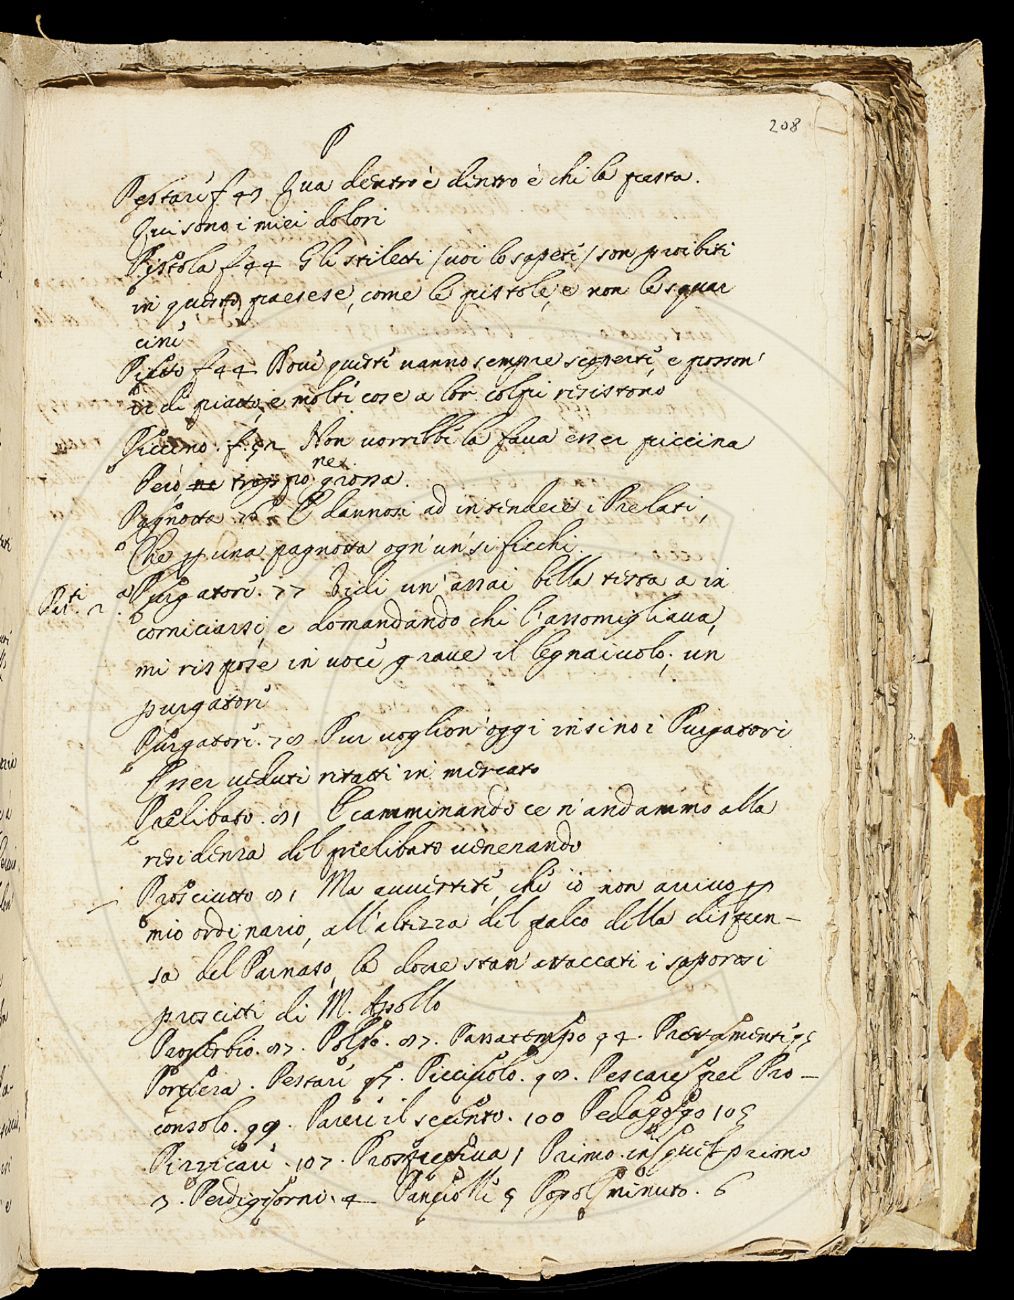 208
P
Pestare f 47 Qua dentro è dentro è chi la pasta.
Qui sono i miei dolori
Pistola f 44 Gli stiletti (voi lo sapete) son proibiti
in questo paesese, come le pistole, e non le squar
cine
Piatto f 44 Dove queste vanno sempre scoperte, e posson'
di di piatto, e molte cose a lor colpi resistono
Piccino. f. 52 Non vorrebbe la fava esser picciina
Però ne troppo ne grossa.
Pagnotta 76 E dannosi ad intendere i Prelati,
Che p una pagnotta ogn'un' si ficchi.
Par.te 2.a Purgatore. 77 Vidi un' assai bella testa a in
corniciarsi, e domandando chi l'assomigliava,
mi rispose in voce grave il legnaiuolo; un
purgatore
Purgatore. 78 Pur voglion' oggi insino i Purgatori
Esser veduti ritratti in mercato
Prelibato. 81 E camminando ce n'andammo alla
residenza del prelibato venerando
Prosciutto 81 Ma avvertite, che io non arrivo p
mio ordinario, all'altezza del palco della dispen-
sa del Parnaso, la dove stan' attaccati i saporosi
prosciutti di M. Apollo
Proverbio. 87. Polso. 87. Passatempo 94. Pretesamente 95
Portiera. Pestare 97. Picciuolo. 98. Pescare pel Pro-
consolo. 99. Parere il secento. 100 Pedagogo 105
Pizzicare. 107. Prospettiva 1 Primo in quel primo
3. Perdigiorni. 4 Panciolle 5 Popol minuto. 6